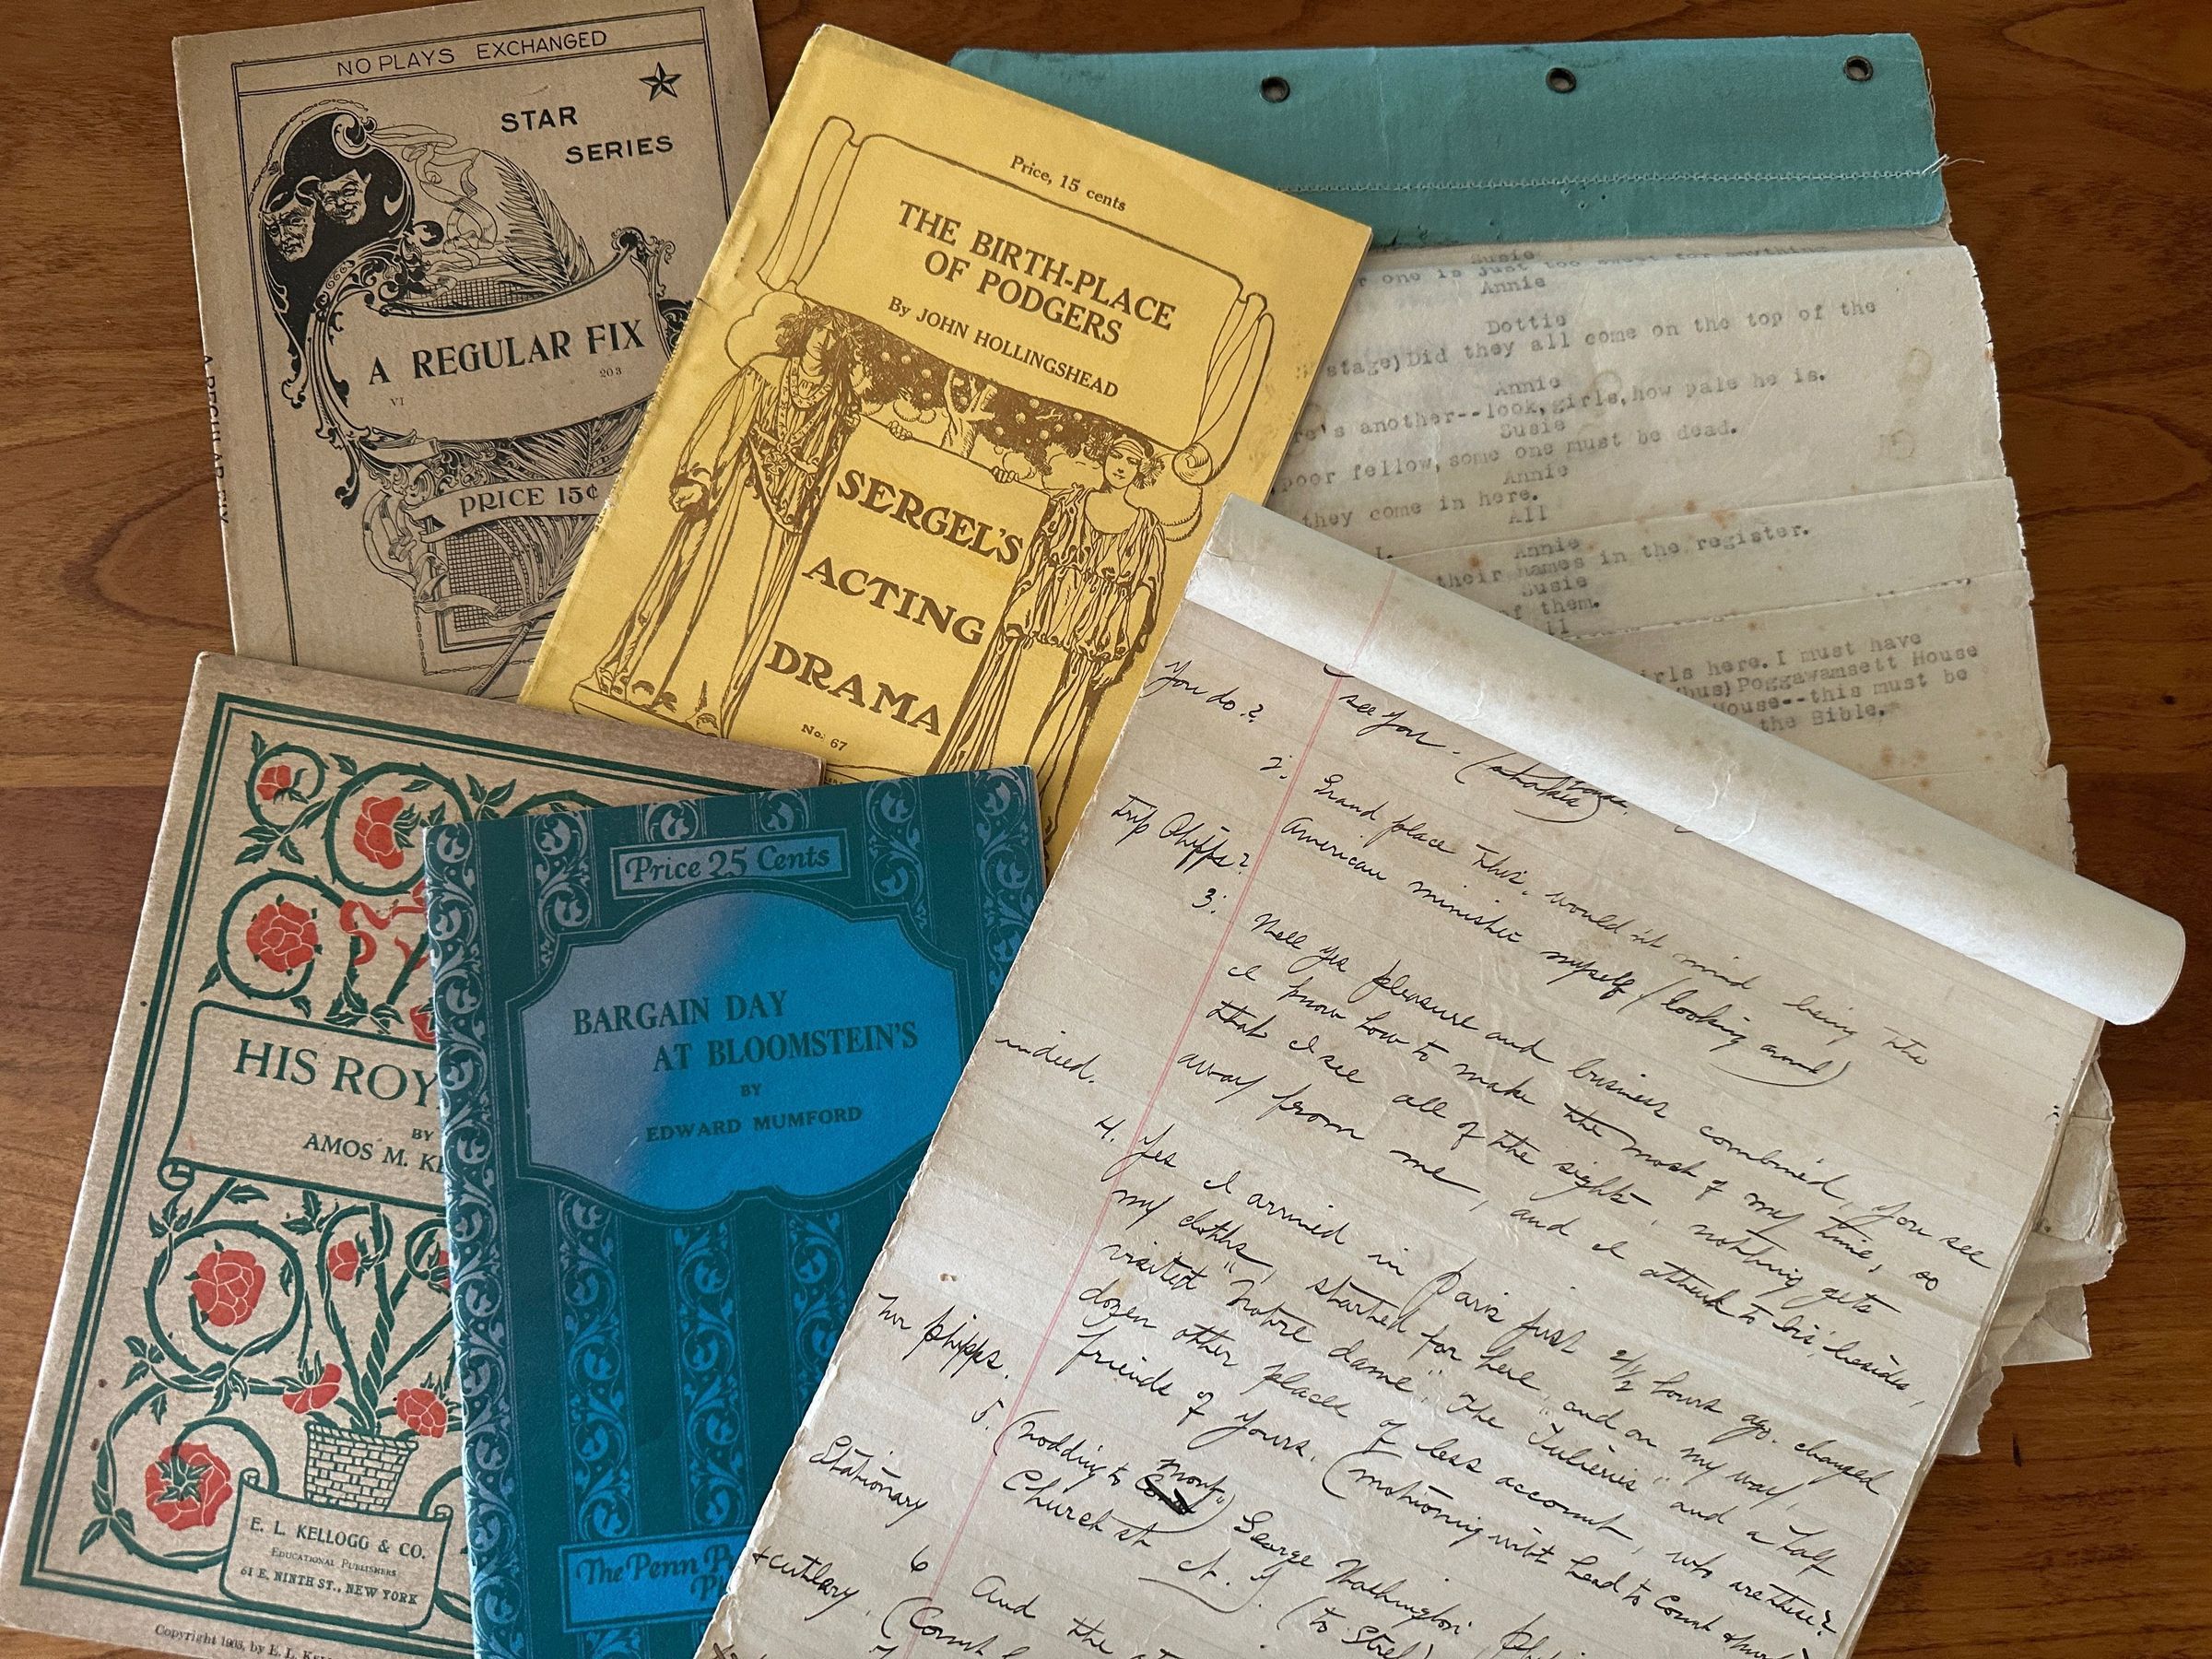 NO PLAYS EXCHANGED
STAR
SERIES
A REGULAR FIX
203
VI
PRICE 15¢
A REGULAR FIX
Price, 15 cents
THE BIRTH-PLACE
OF PODGERS
By JOHN HOLLINGSHEAD
SERGEL'S
ACTING
DRAMA
No. 67
HIS ROY
BY
AMOS M. KE
E. L. KELLOGG & CO.
EDUCATIONAL PUBLISHERS
61 E. NINTH ST., NEW YORK
Copyright 1903, by E. L. KELL
Price 25 Cents
BARGAIN DAY
AT BLOOMSTEIN'S
BY
EDWARD MUMFORD
The Penn P
Susie
r one is just too sweet for anything
Annie
Dottie
stage)Did they all come on the top of the
Annie
re's another--look,girls,how pale he is.
Susie
poor fellow,some one must be dead.
Annie
they come in here.
All
I.
Annie
their names in the register.
Susie
of them.
irls here. I must have
bus)Poggawamsett House
House--this must be
the Bible.
You do?
see you.
2. Grand place this. would'nt mind being the
American minister myself (looking around)
Trip Phipps?
3. Well yes pleasure and business combined, you see
I know how to make the most of my time, so
that I see all of the sights, nothing gets
away from me, and I attend to bis. besides,
indeed.
4. Yes I arrived in Paris just 2 1/2 hours ago. changed
my cloths, started for here, and on my way,
visited "Notre dame", "The Tulieries" and a half
dozen other places of less account, who are these?
friends of yours. (motioning with head to Count &
Mr Phipps.
5. (nodding to Mont.) George Washington
Church st N. Y. (to Stel)
Stationary
& cutlary.
6 And the
(Count
7